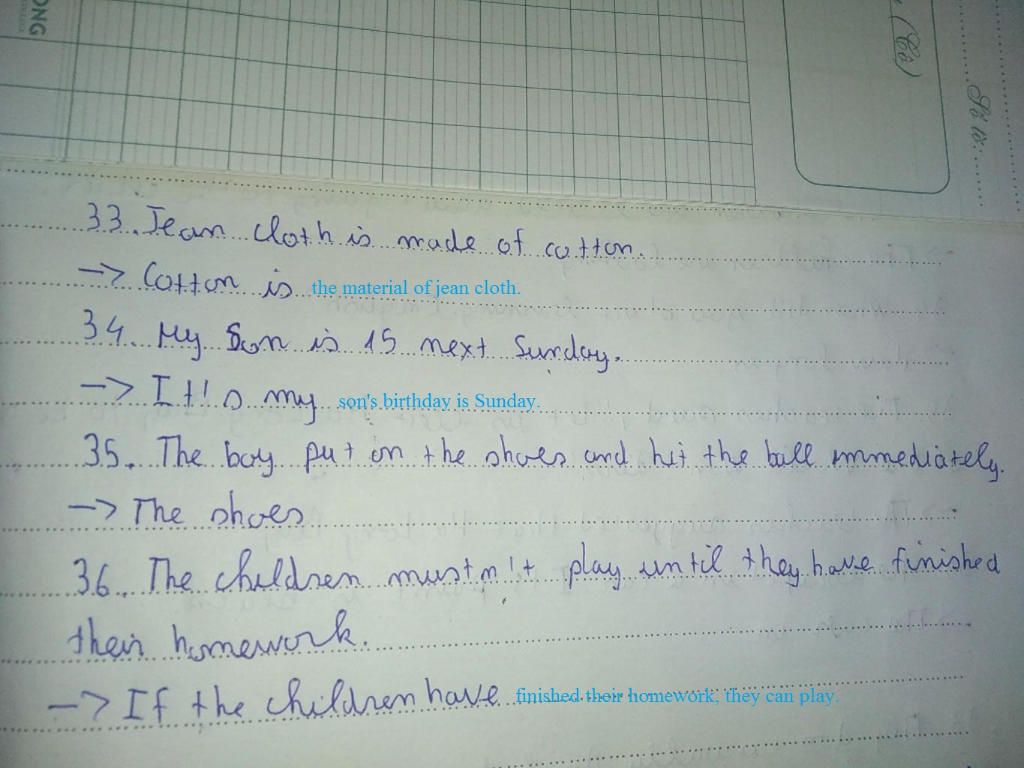 ONG
(Cô)
Số tờ:
33. Jean cloth is made of cotton.
-> Cotton is the material of jean cloth.
34. My Son is 15 next Sunday.
-> It's my son's birthday is Sunday.
35. The boy put on the shoes and hit the ball immediately.
-> The shoes
36. The children mustn't play until they have finished
their homework.
-> If the children have finished their homework, they can play.